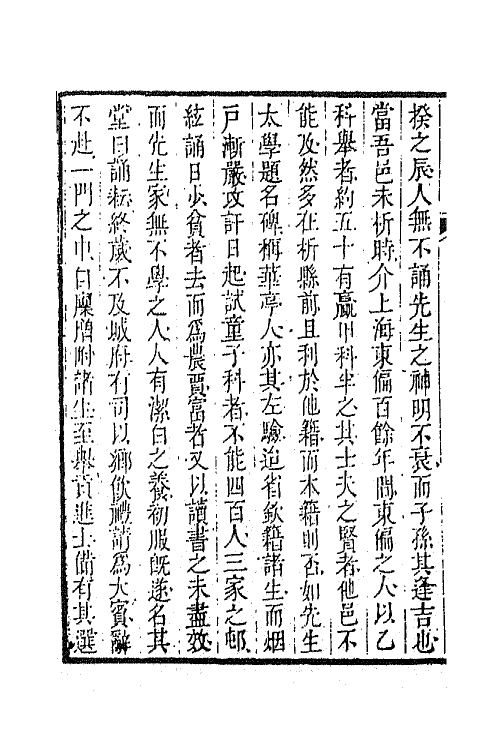 揆之辰人無不誦先生之神明不衰而子孫其逢吉也
當吾邑未析時介上海東偏百餘年間東偏之人以乙
科舉者約五十有贏甲科半之其士大夫之賢者他邑不
能及然多在析縣前且利於他籍而本籍則否如先生
太學題名碑稱華亭人亦其左驗迨省欽籍諸生而烟
戸漸嚴攻訐日起試童子科者不能四百人三家之邨
絃誦日少貧者去而爲農賈富者又以讀書之未盡效
而先生家無不學之人人有潔白之養初服既遂名其
堂曰誦耘終歲不及城府有司以鄉飲禮請爲大賓辭
不赴一門之中自廩增附諸生至舉貢進士備有其選